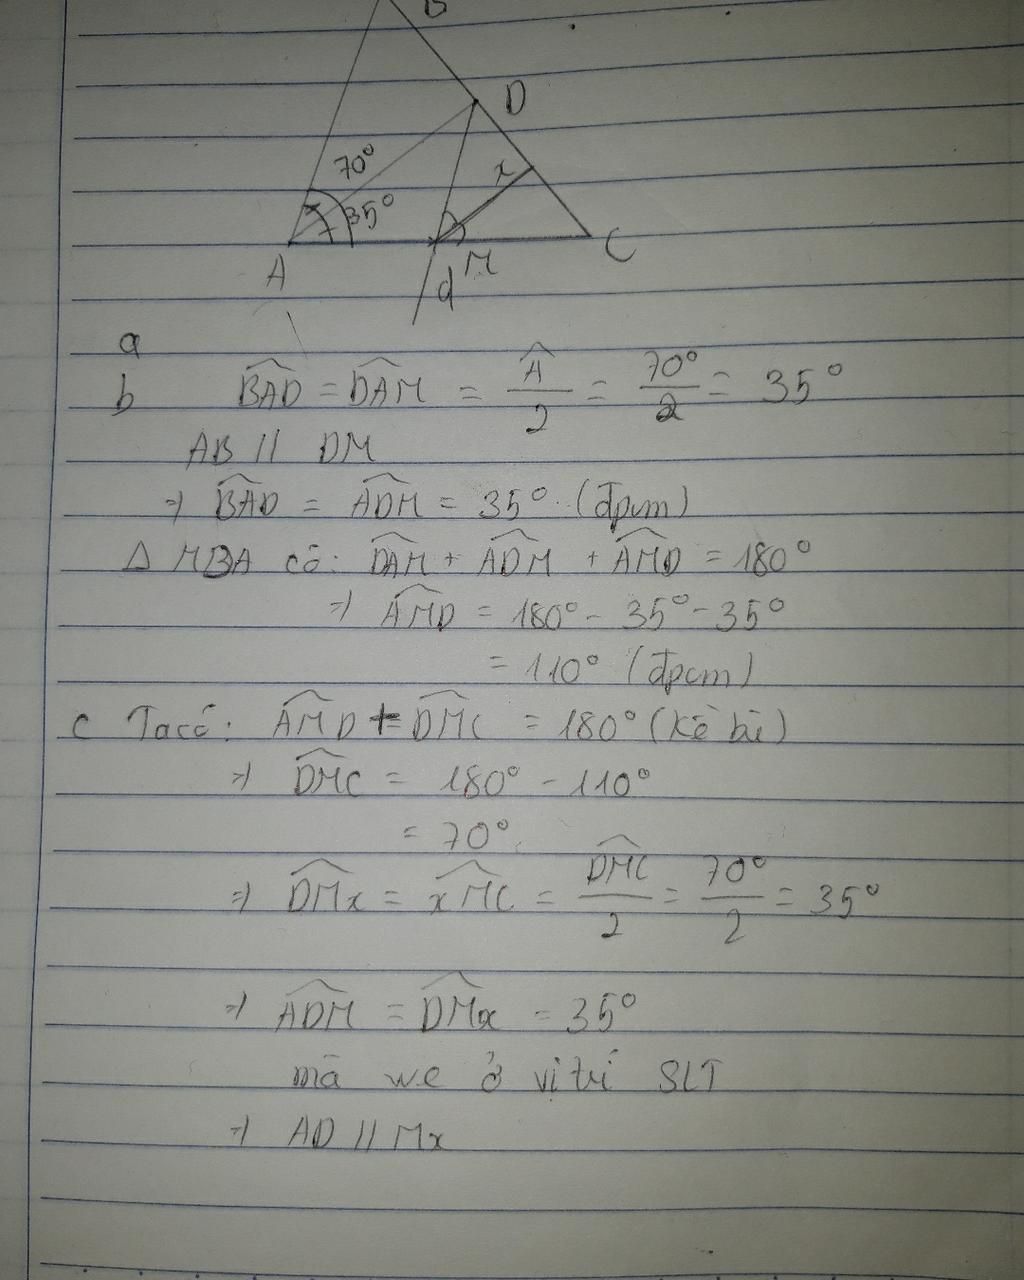 B
D
70°
x
35°
A
M
C
d
a
b BAD = DAM = Â/2 = 70°/2 = 35°
AB // DM
=) BAD = ADM = 35° (đpcm)
Δ MBA có: DAM + ADM + AMD = 180°
=) AMD = 180° - 35° - 35°
= 110° (đpcm)
c Ta có: AMD + DMC = 180° (kề bù)
=) DMC = 180° - 110°
= 70°
=) DMx = xMC = DMC/2 = 70°/2 = 35°
=) ADM = DMx = 35°
mà we ở vị trí SLT
=) AD // Mx